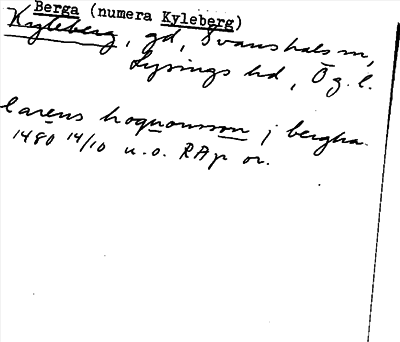 Berga (numera Kyleberg)
Kyleberg, gd, Svanshals sn,
Lysings hd, Ög. l.
larens hoquonsson j bergha
1480 14/10 u.o. RAp or.